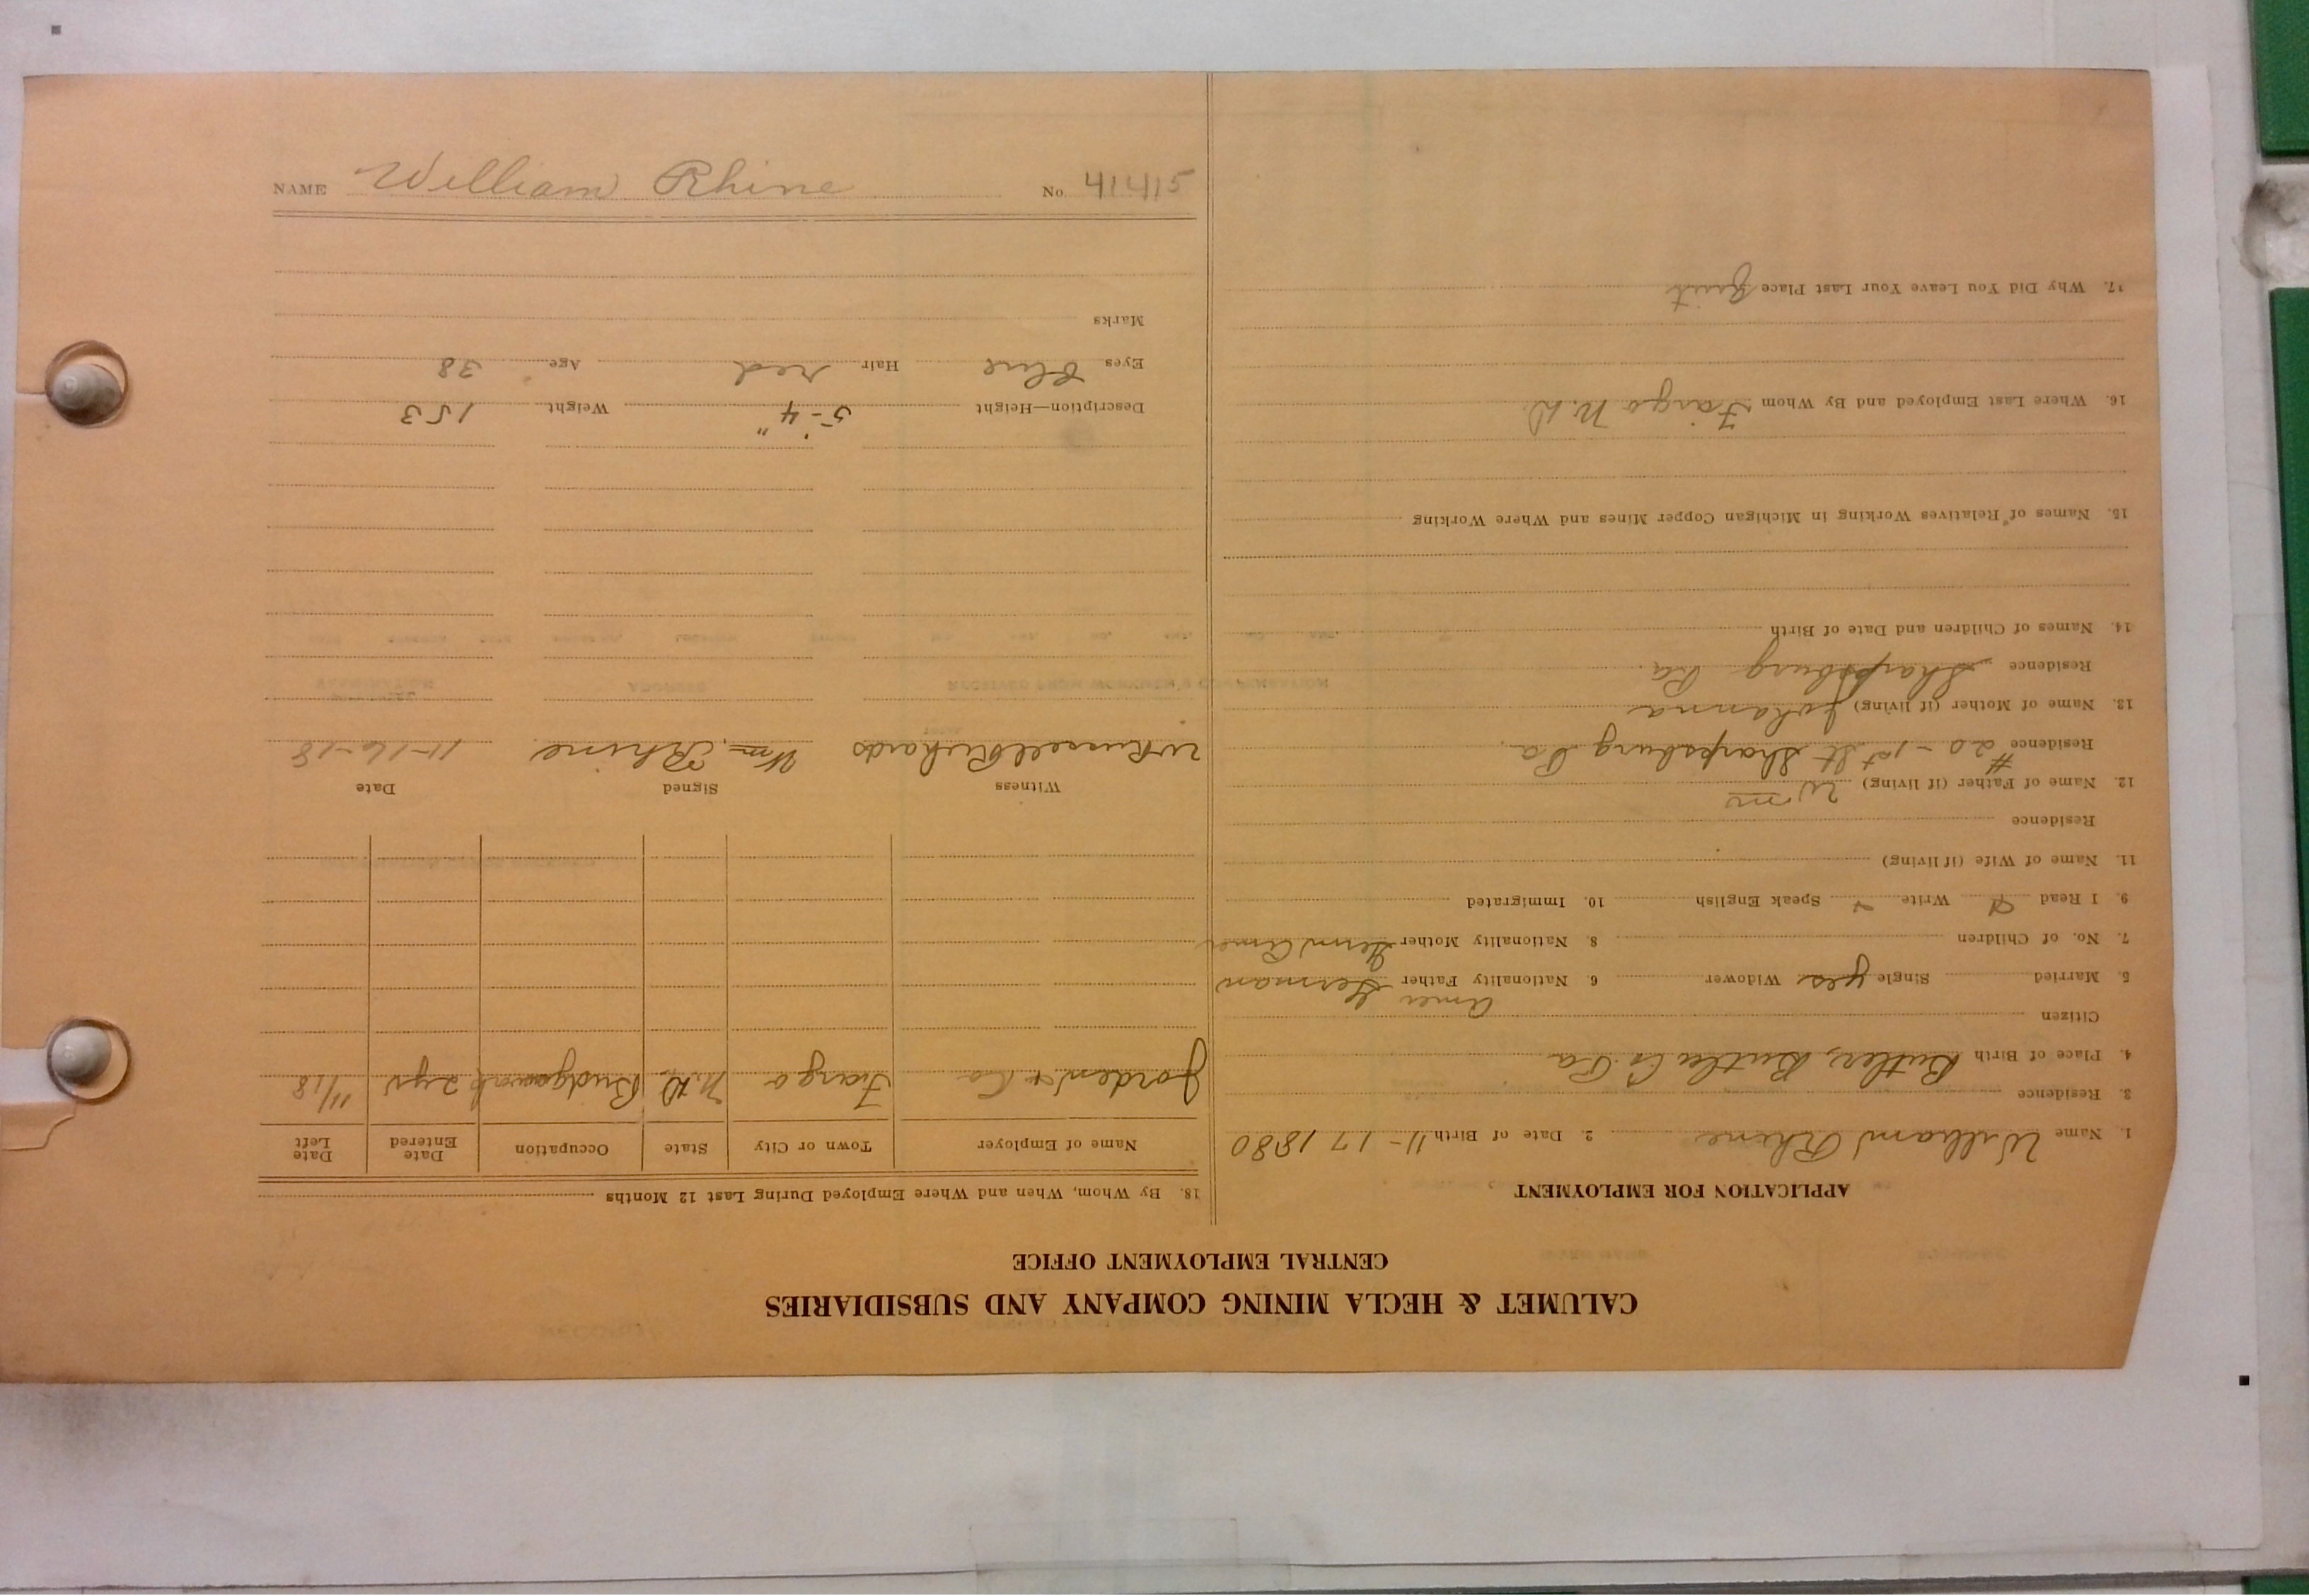 CALUMET & HECLA MINING COMPANY AND SUBSIDIARIES
CENTRAL EMPLOYMENT OFFICE
APPLICATION FOR EMPLOYMENT
1. Name William Rhine 2. Date of Birth 11-17 1880
3. Residence
4. Place of Birth Butler, Butler Co Pa
Citizen Amer
5. Married Single yes Widower 6. Nationality Father German
7. No. of Children 8. Nationality Mother Germ Amer
9. I Read Write Speak English 10. Immigrated
11. Name of Wife (if living)
Residence
12. Name of Father (if living) Wm
Residence #20-1st St Sharpsburg Pa.
13. Name of Mother (if living) Johanna
Residence Sharpsburg Pa.
14. Names of Children and Date of Birth
15. Names of Relatives Working in Michigan Copper Mines and Where Working
16. Where Last Employed and By Whom Fargo N.D.
17. Why Did You Leave Your Last Place Quit
18. By Whom, When and Where Employed During Last 12 Months
Name of Employer Town or City State Occupation Date Entered Date Left
Jorden & Co Fargo N.D. Bridgework 2 yrs 11/18
Witness Signed Date
W Russell Richards Wm. Rhine 11-16-18
Description—Height 5'-4" Weight 153
Eyes Blue Hair red Age 38
Marks
NAME William Rhine No. 41415